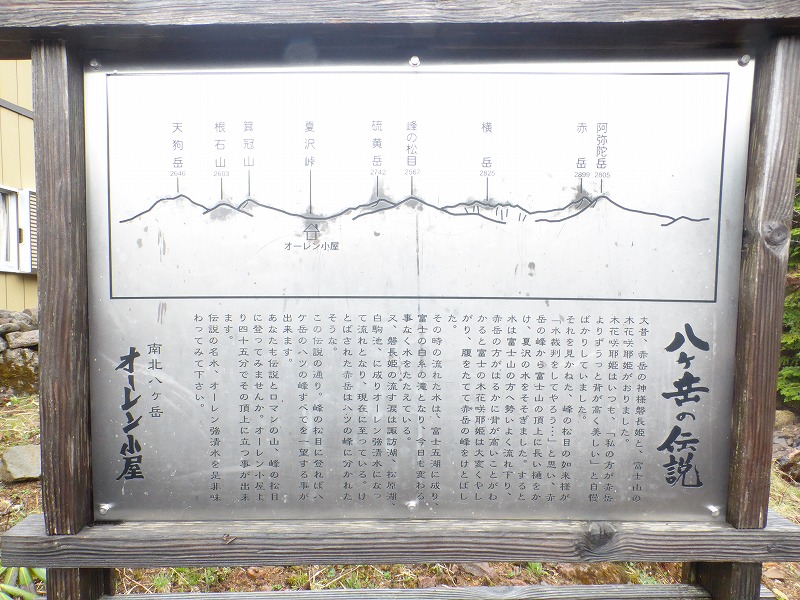 阿弥陀岳
2805
赤岳
2899
横岳
2825
峰の松目
2567
硫黄岳
2742
夏沢峠
箕冠山
根石山
2603
天狗岳
2646
オーレン小屋
八ヶ岳の伝説
大昔、赤岳の神様磐長姫と、富士山の
木花咲耶姫がおりました。
木花咲耶姫はいつも、「私の方が赤岳
よりずうっと背が高く美しい」と自慢
ばかりしていました。
それを見かねた、峰の松目の如来様が
「水裁判をしてやろう…」と思い、赤
岳の峰から富士山の頂上に長い樋をか
け、夏沢の水をそそぎました。すると
水は富士山の方へ勢いよく流れ下り、
赤岳の方がはるかに背が高いことがわ
かると富士の木花咲耶姫は大変くやし
がり、腹をたてて赤岳の峰をけとばし
た。
その時の流れた水は、富士五湖に成り、
富士の白糸の滝となり、今日も変わる
事なく水をたたえている。
又、磐長姫の流す涙は諏訪湖、松原湖、
白駒池、に成りオーレン強清水になっ
て流れとなり、現在に至っている。け
とばされた赤岳は八ツの峰に分かれた
そうな。
この伝説の通り。峰の松目に登れば八
ケ岳の八ツの峰すべてを一望する事が
出来ます。
あなたも伝説とロマンの山、峰の松目
に登ってみませんか。オーレン小屋よ
り四十五分でその頂上に立つ事が出来
ます。
伝説の名水、オーレン強清水を是非味
わってみて下さい。
南北八ヶ岳
オーレン小屋